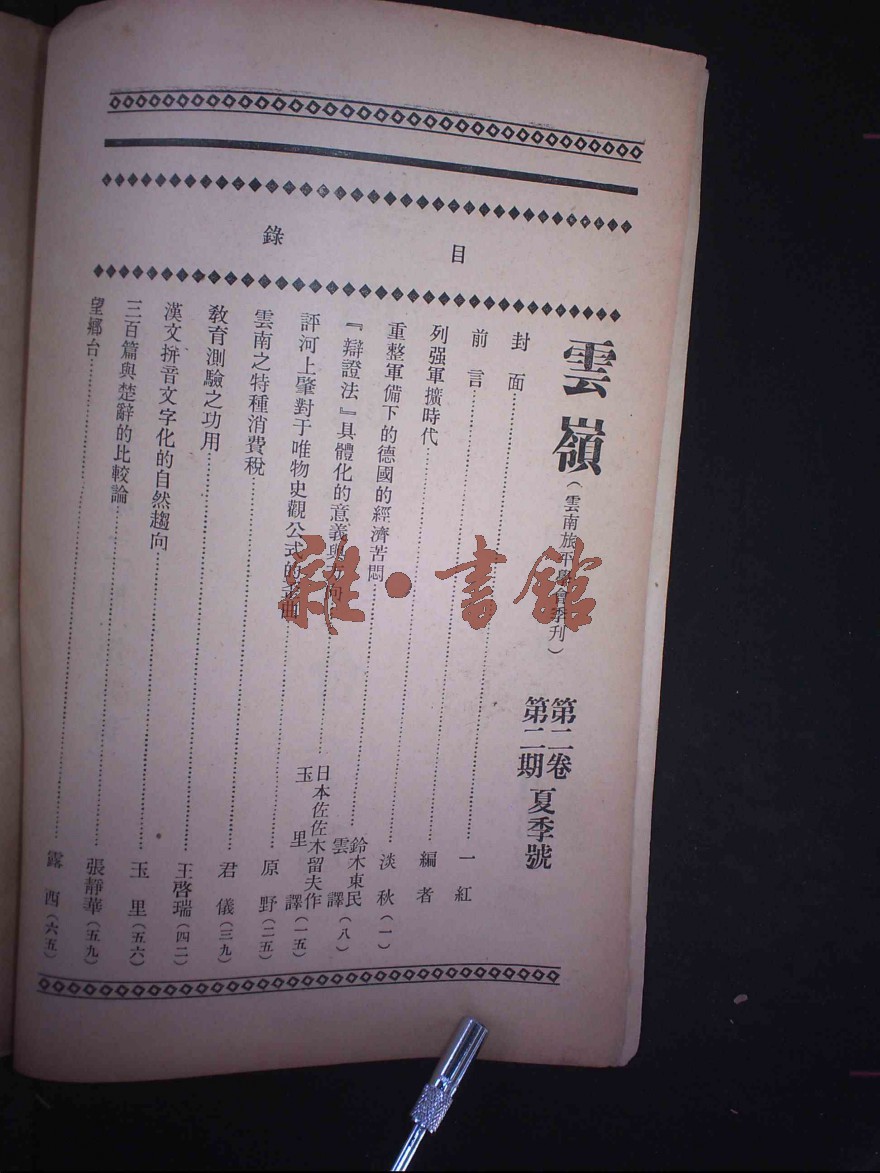 目錄
雲嶺（雲南旅平學會季刊）第二卷第二期夏季號
封面……一紅
前言……編者
列强軍擴時代……淡秋（一）
重整軍備下的德國的經濟苦悶……鈴木東民 雲譯（八）
『辯證法』具體化的意義與方向……日本佐佐木留夫作 玉里譯（一五）
評河上肇對于唯物史觀公式的歪曲……原野（二五）
雲南之特種消費稅……君儀（三九）
敎育測驗之功用……王啓瑞（四二）
漢文拼音文字化的自然趨向……玉里（五六）
三百篇與楚辭的比較論……張靜華（五九）
望鄉台……露西（六五）
雜·書館